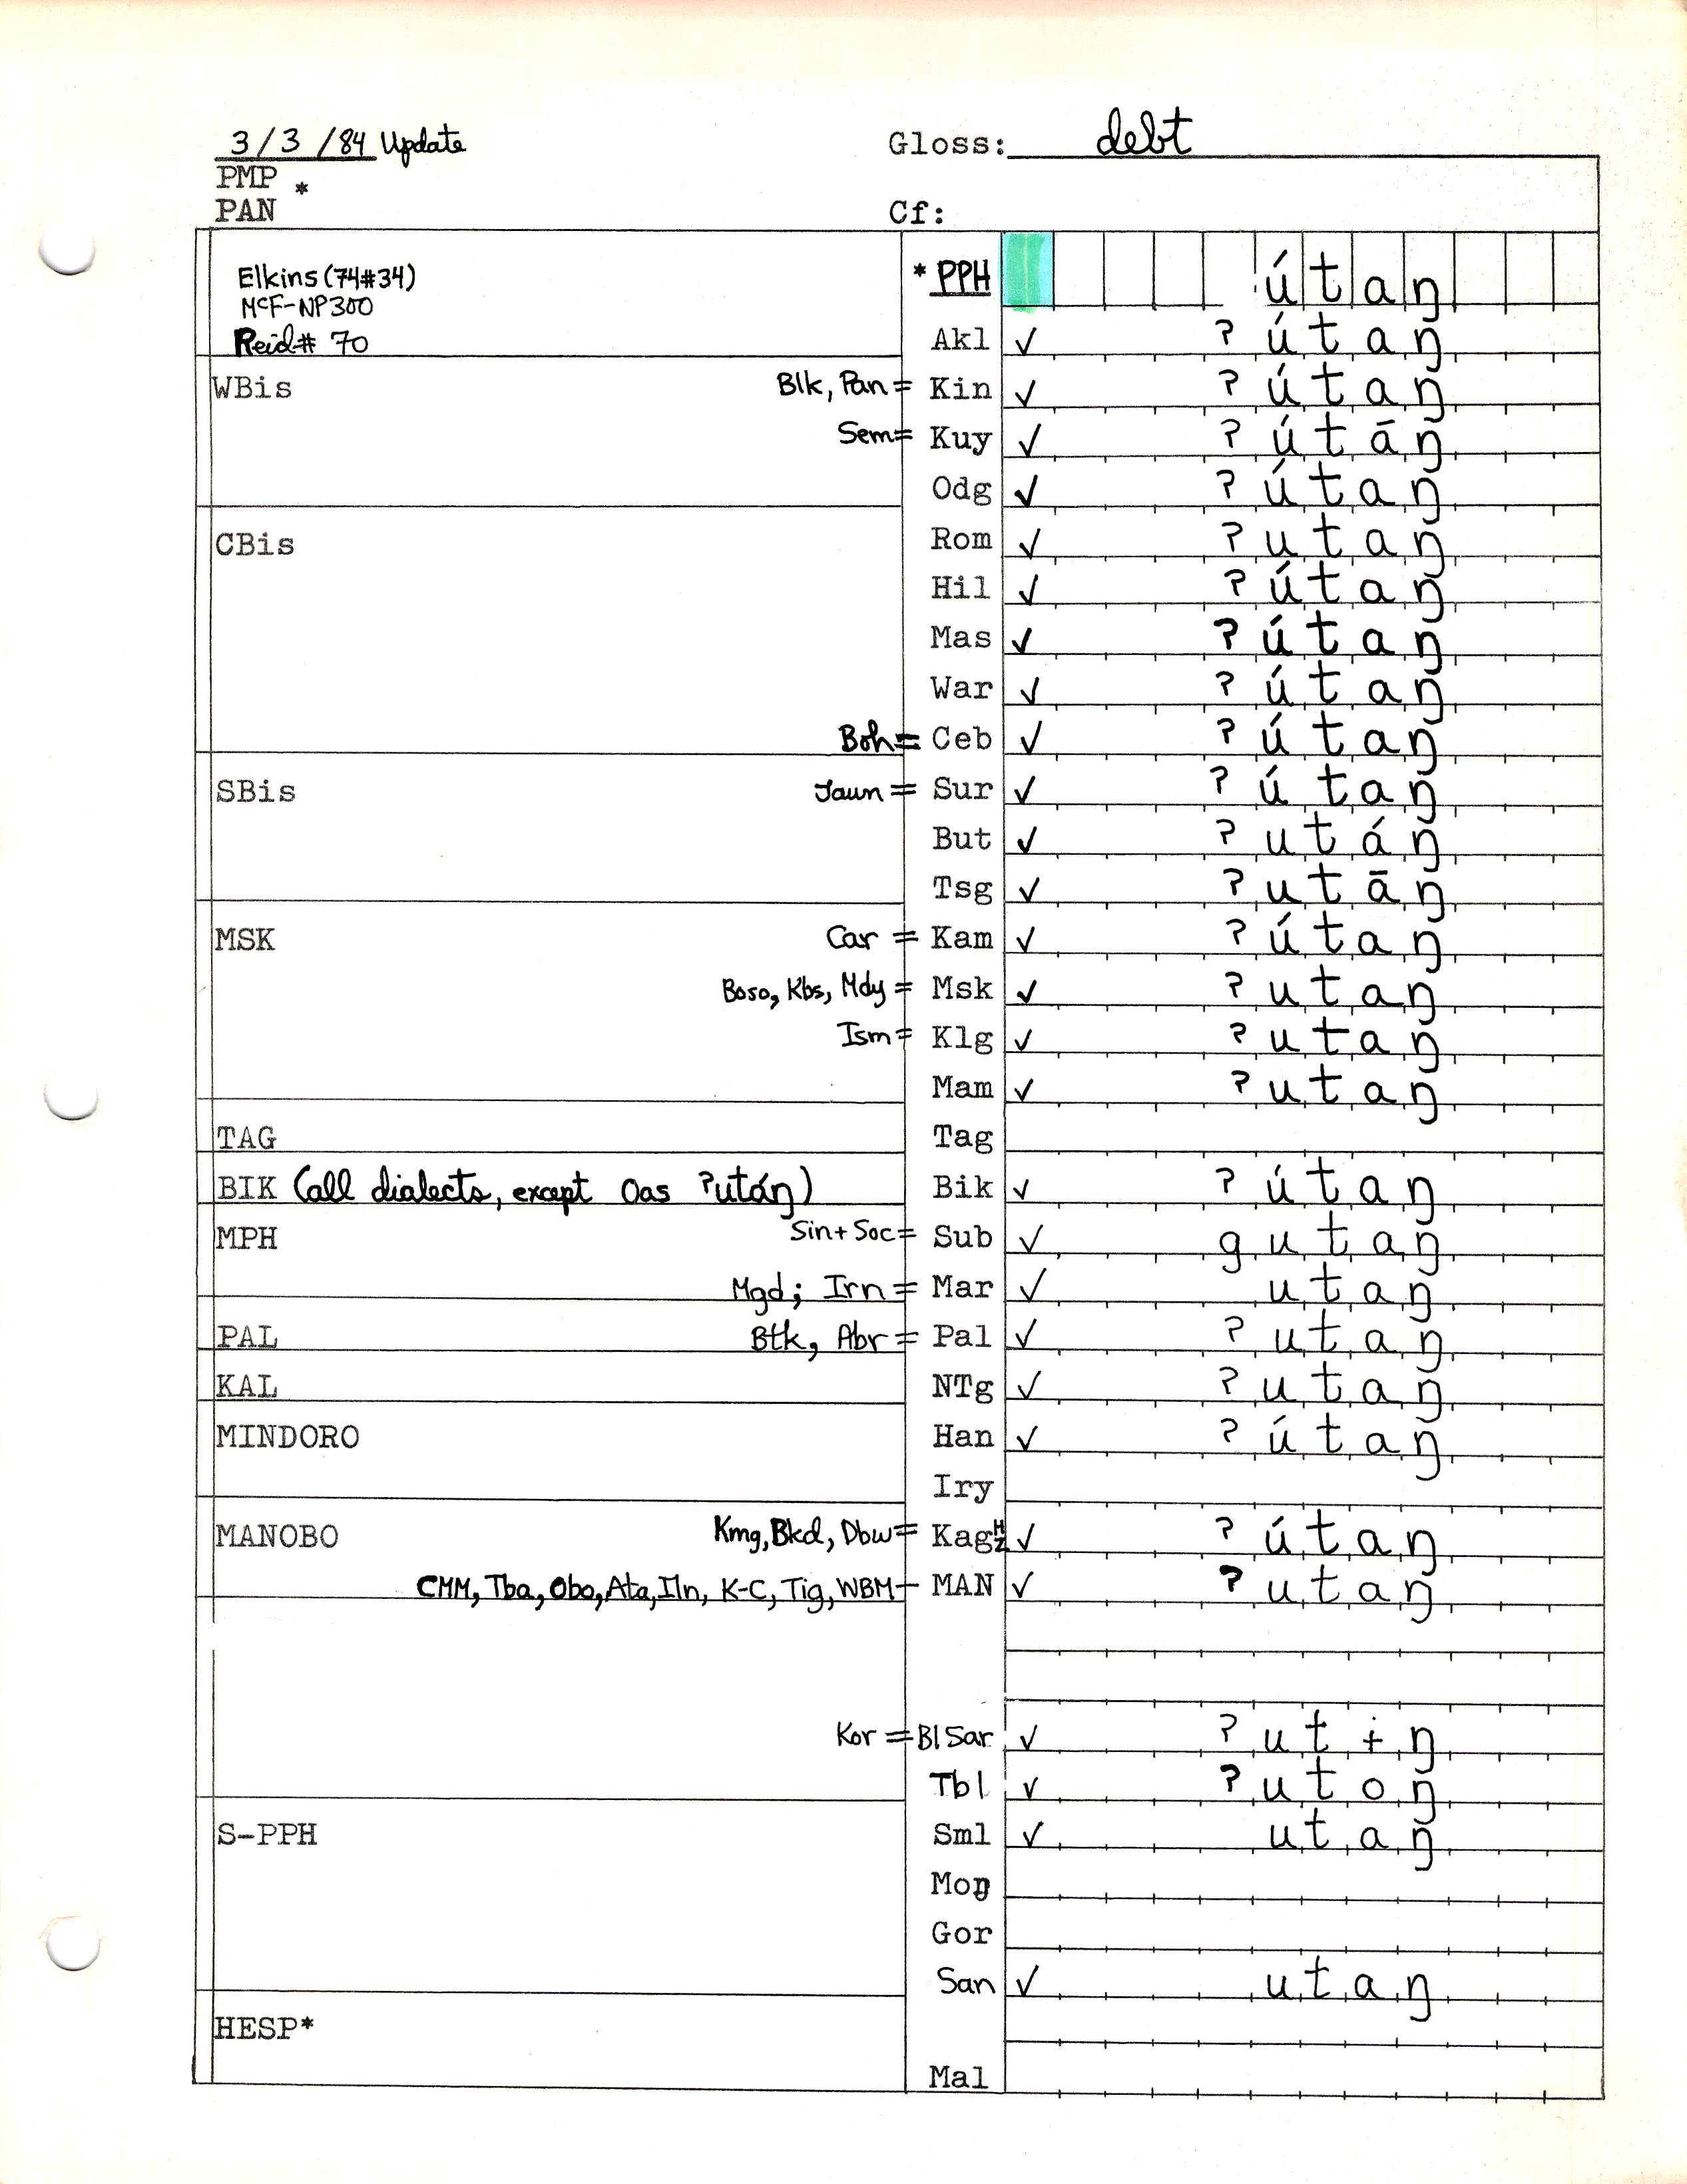 3/3/84 Update Gloss: debt
PMP *
PAN Cf:
Elkins (74#34) * PPH útaŋ
McF-NP300
Reid# 70 Akl ✓ ʔútaŋ
WBis Blk, Pan = Kin ✓ ʔútaŋ
Sem = Kuy ✓ ʔútāŋ
Odg ✓ ʔútaŋ
CBis Rom ✓ ʔutaŋ
Hil ✓ ʔútaŋ
Mas ✓ ʔútaŋ
War ✓ ʔútaŋ
Boh = Ceb ✓ ʔútaŋ
SBis Jaun = Sur ✓ ʔútaŋ
But ✓ ʔutáŋ
Tsg ✓ ʔutāŋ
MSK Car = Kam ✓ ʔútaŋ
Boso, Kbs, Mdy = Msk ✓ ʔutaŋ
Ism = Klg ✓ ʔutaŋ
Mam ✓ ʔutaŋ
TAG Tag
BIK (all dialects, except Oas ʔutáŋ) Bik ✓ ʔútaŋ
MPH Sin + Soc = Sub ✓ gutaŋ
Mgd; Irn = Mar ✓ utaŋ
PAL Btk, Abr = Pal ✓ ʔutaŋ
KAL NTg ✓ ʔutaŋ
MINDORO Han ✓ ʔútaŋ
Iry
MANOBO Kmg, Bkd, Dbw = Kag ✓ ʔútaŋ
CMM, Tba, Obo, Ata, Iln, K-C, Tig, WBM - MAN ✓ ʔutaŋ
Kor = Bl Sar ✓ ʔutɨŋ
Tbl ✓ ʔutoŋ
S-PPH Sml ✓ utaŋ
Moŋ
Gor
San ✓ utaŋ
HESP*
Mal